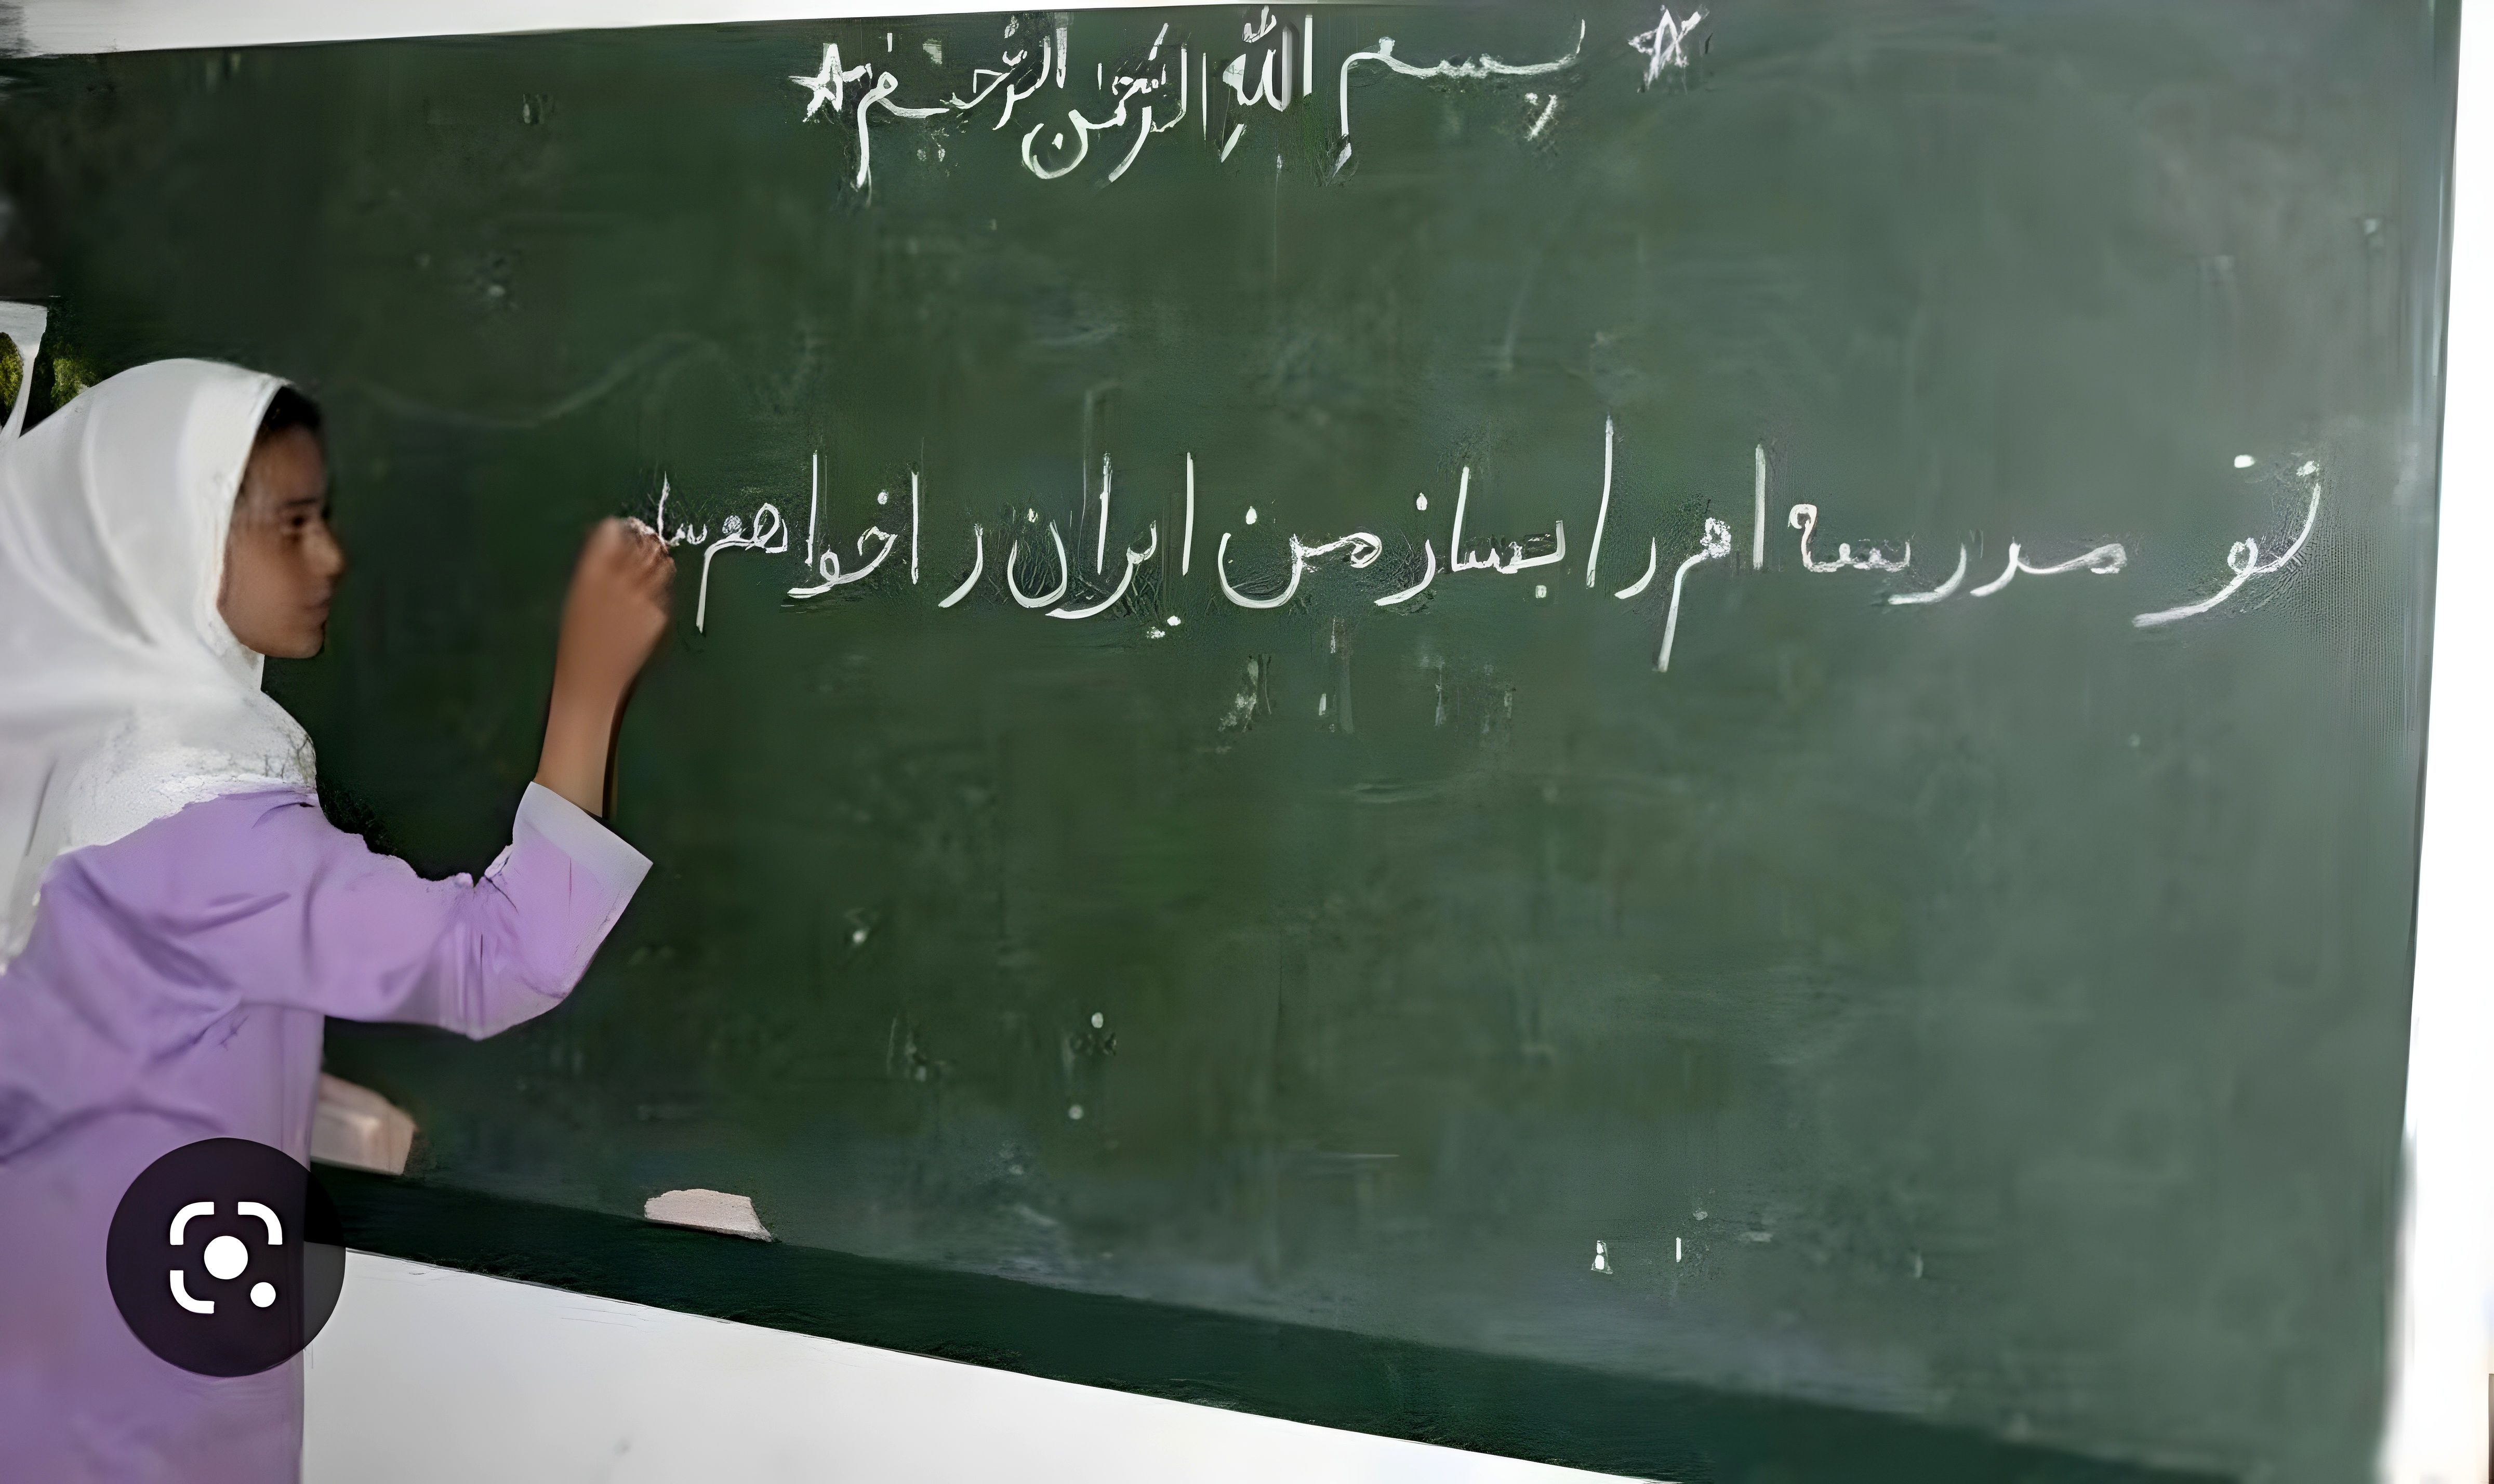 ☆ بِسمِ اللّهِ الرَّحمن الرَّحیم ☆
تو مدرسه ام را بساز من ایران را خواهم سا